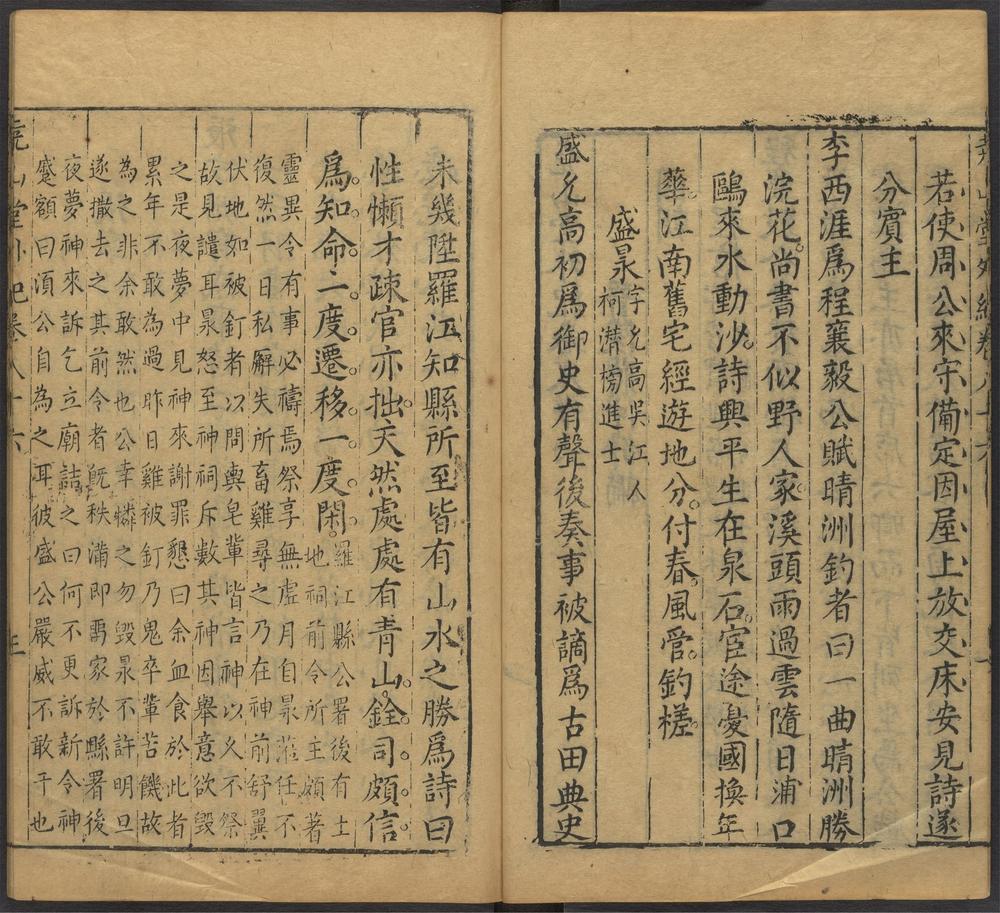 堯山堂外紀卷八十六
若使周公來守備定因屋上放交床安見詩遂
分賓主
李西涯爲程襄毅公賦晴洲釣者曰一曲晴洲勝
浣花尚書不似野人家溪頭雨過雲隨日浦口
鷗來水動沙詩興平生在泉石宦途憂國換年
華江南舊宅經遊地分付春風管釣槎
盛杲字允高吳江人
柯潛榜進士
盛允高初爲御史有聲後奏事被謫爲古田典史
未幾陞羅江知縣所至皆有山水之勝爲詩曰
性懶才疎官亦拙天然處處有青山銓司頗信
爲知命一度遷移一度閑羅江縣公署後有土
地祠前令所主頗著
靈異令有事必禱焉祭享無虛月自杲蒞任不
復然一日私解失所畜雞尋之乃在神前舒翼
伏地如被釘者以問輿皂輩皆言神以久不祭
故見譴耳杲怒至神祠斥數其神因舉意欲毀
之是夜夢中見神來謝罪懇曰余血食於此者
累年不敢為過昨日雞被釘乃鬼卒輩苦饑故
為之非余敢然也公幸憐之勿毀杲不許明旦
遂撤去之其前令者旣秩滿即寓家於縣署後
夜夢神來訴乞立廟詰之曰何不更訴新令神
蹙額曰湏公自為之耳彼盛公嚴威不敢干也
堯山堂外紀卷八十六